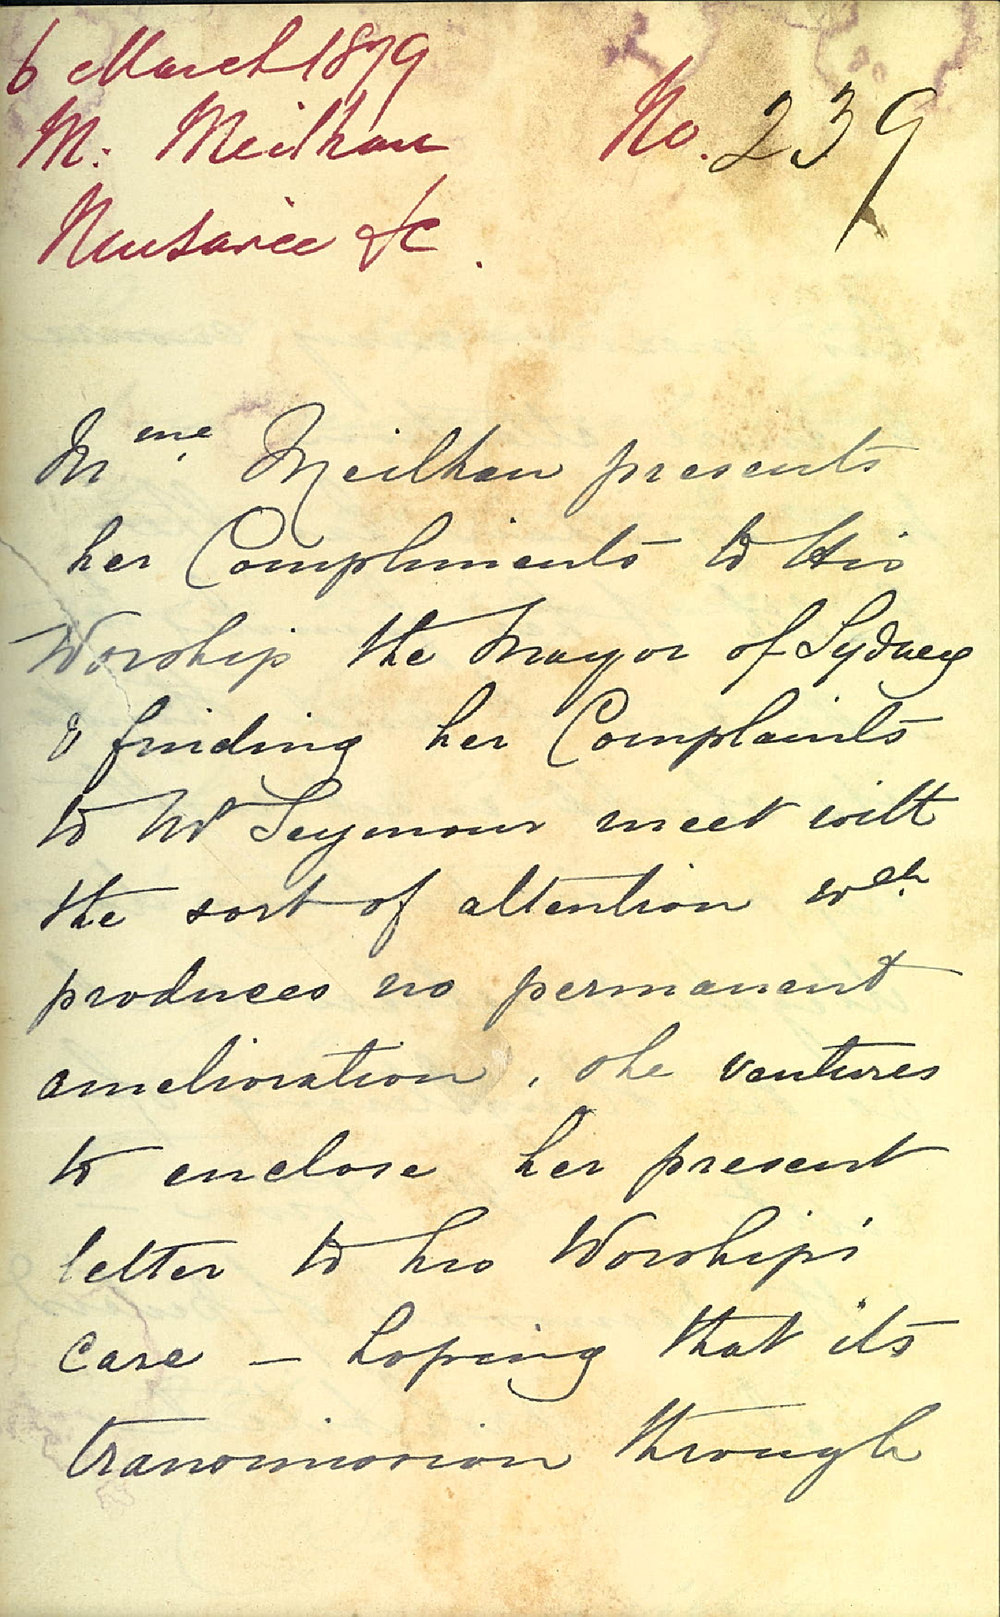 6 March 1879
M: Meilhan
No. 239
Nusance &c.
Mme. Meilhan presents
her Compliments to His
Worship the Mayor of Sydney
& finding her Complaints
to Mr Seymour meet with
the sort of attention wch.
produces no permanent
amelioration, she ventures
to enclose her present
letter to his Worship's
care – hoping that its
transmission through